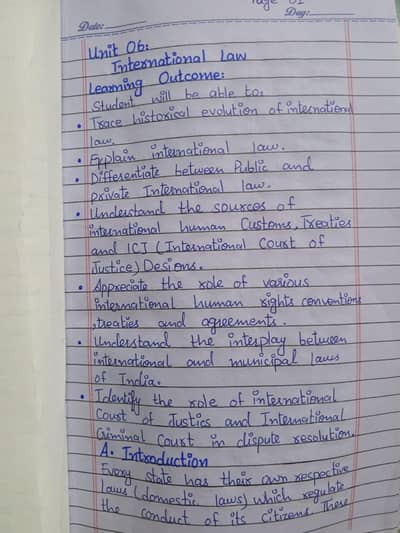 Page 01
Date:
Day:
Unit 06:
International Law
Learning Outcome:
Student will be able to:
• Trace historical evolution of international
law.
• Explain international law.
• Differentiate between Public and
private International law.
• Understand the sources of
international human Customs, Treaties
and ICJ (International Court of
Justice) Desions.
• Appreciate the role of various
international human rights conventions
,treaties and agreements.
• Understand the interplay between
international and municipal laws
of India.
• Identify the role of international
Court of Justics and International
Criminal Court in dispute resolution.
A. Introduction
Every state has their own respective
laws (domestic laws) which regulate
the conduct of its citizens. These